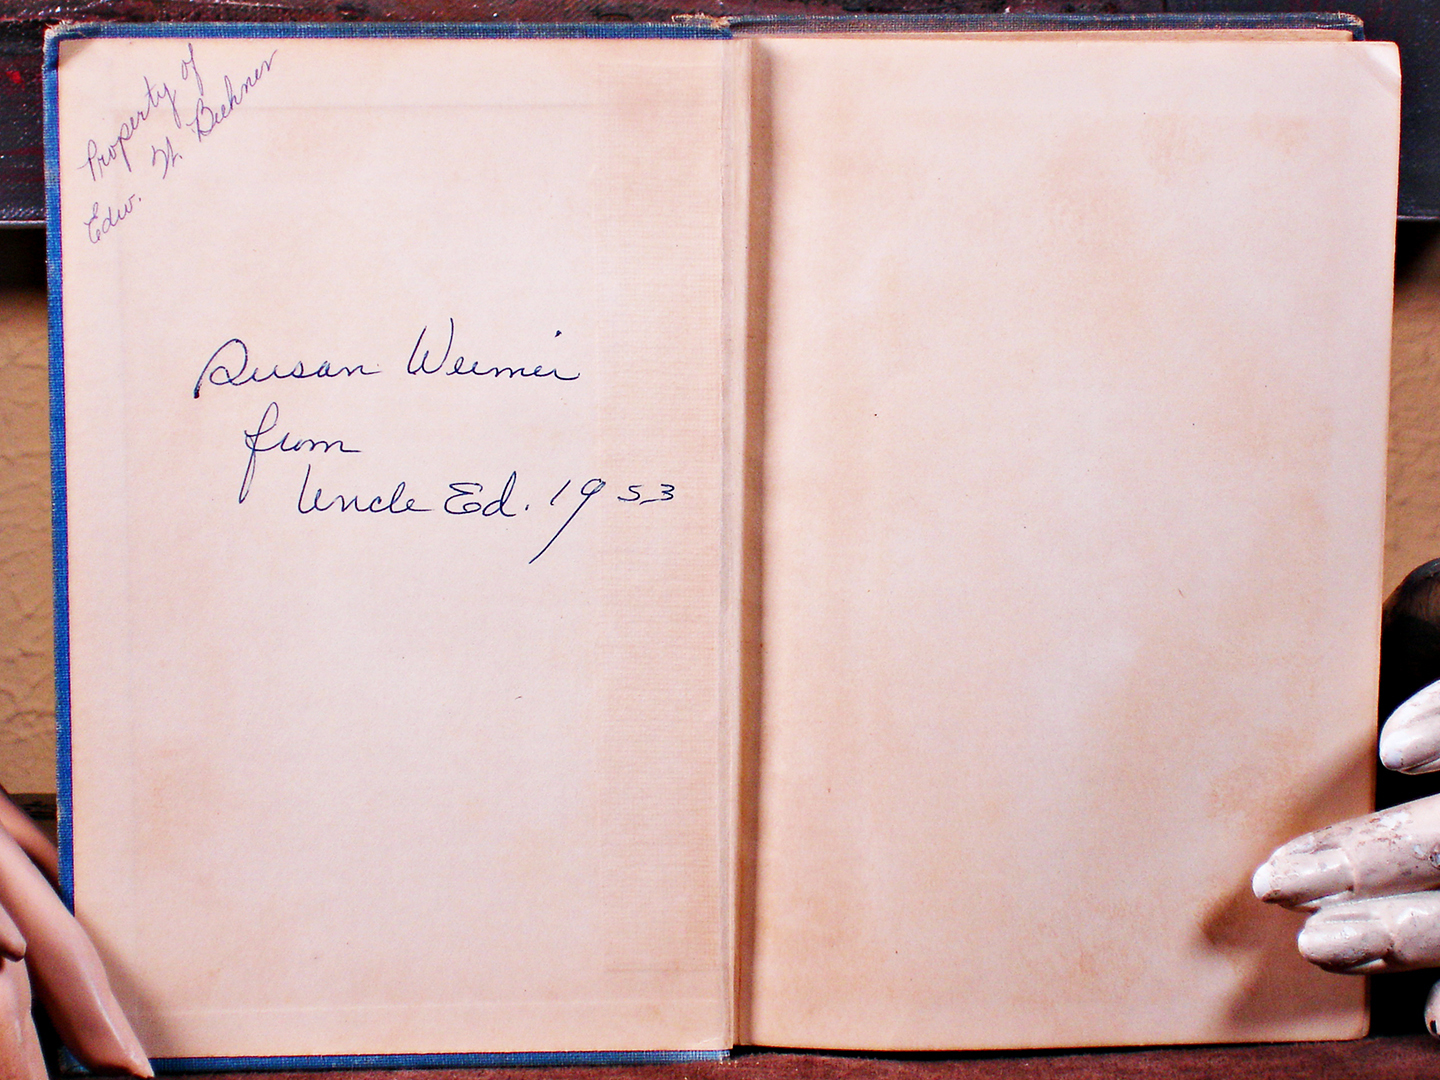 Property of
Edw. H. Buehner
Susan Weimer
from
Uncle Ed. 1953